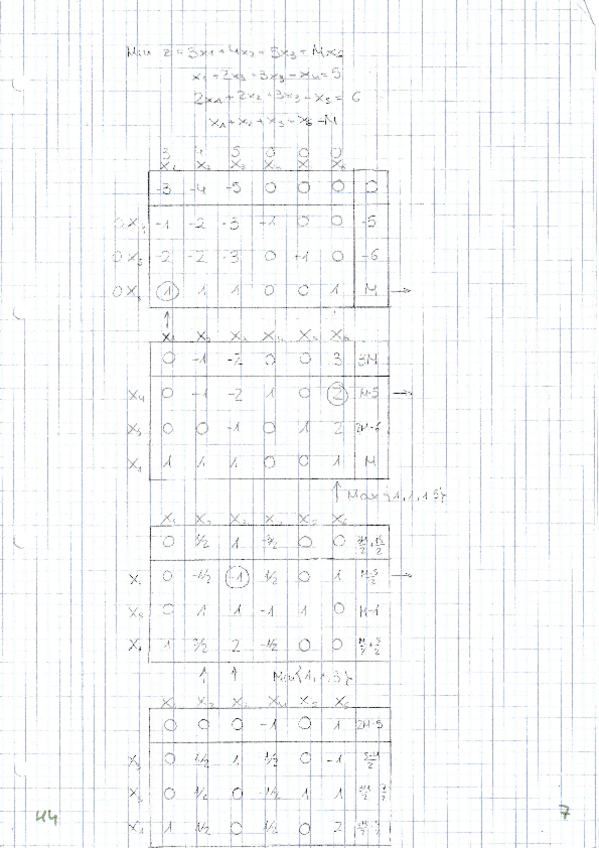 Min z = 3x1 + 4x2 + 5x3 + Mx6
x1 + 2x2 + 3x3 - x4 = 5
2x1 + 2x2 + 3x3 - x5 = 6
x1 + x2 + x3 - x6 = M
3 4 5 0 0 0
x1 x2 x3 x4 x5 x6
-3 -4 -5 0 0 0 0
0 x4 -1 -2 -3 +1 0 0 -5
0 x5 -2 -2 -3 0 +1 0 -6
0 x6 1 1 1 0 0 1 M →
↑
x1 x2 x3 x4 x5 x6
0 -1 -2 0 0 3 3M
x4 0 -1 -2 1 0 2 M-5 →
x5 0 0 -1 0 1 2 2M-6
x1 1 1 1 0 0 1 M
↑ Max{1,1,15}
x1 x2 x3 x4 x5 x6
0 1/2 1 -3/2 0 0
0 -1/2 -1 1/2 0 1 M-5/2 →
x5 0 1 1 -1 1 0 M-1
x1 1 3/2 2 -1/2 0 0
↑ ↑ Min{1,1,3}
x1 x2 x3 x4 x5 x6
0 0 0 -1 0 1 2M-5
x3 0 1/2 1 1/2 0 -1 5-M/2
0 1/2 0 -1/2 1 1
x1 1 1/2 0 1/2 0 2
44
7